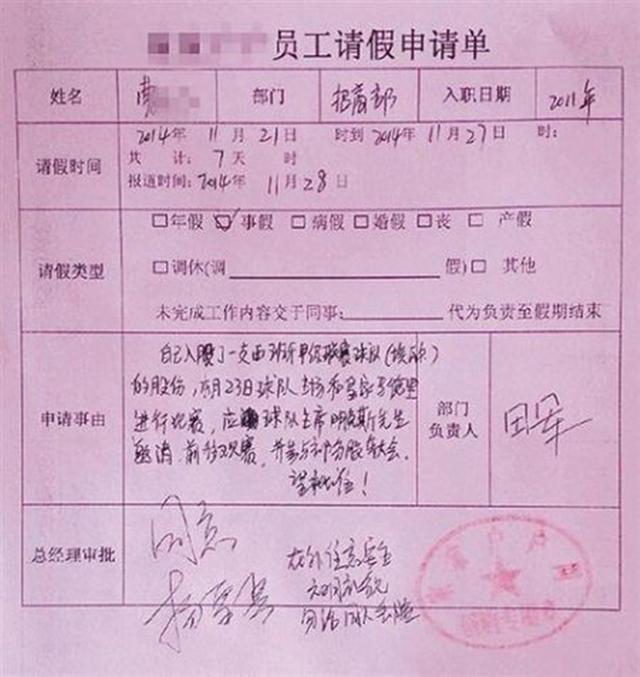 员工请假申请单
姓名 部门 招商部 入职日期 2011年
请假时间
2014年 11月 21日 时到 2014年 11月 27日 时:
共 计: 7 天 时
报道时间: 2014年 11月 28日
请假类型
□年假 ☑事假 □病假 □婚假 □丧 □ 产假
□调休(调 假)□ 其他
未完成工作内容交于同事: 代为负责至假期结束
申请事由
自己入股了一支西班牙甲级联赛球队(埃瓦尔)
的股份,11月23日球队主场和皇家马德里
进行比赛,应 球队主席 先生
邀请,前往观赛,并参与 股东大会。
望批准!
部门
负责人
总经理审批
同意
在外注意安全